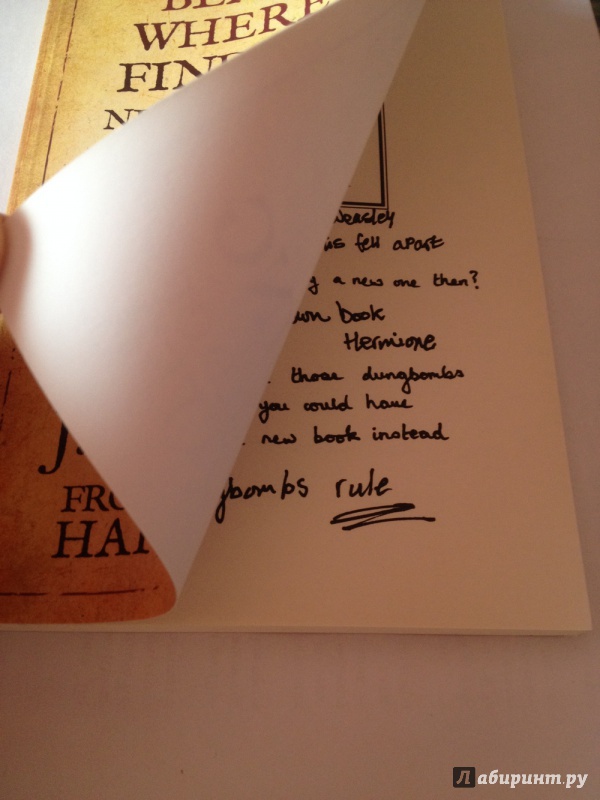 WHERE
FIN
N
J
FRO
HA
Weasley
is fell apart
g a new one then?
wn book
Hermione
those dungbombs
you could have
new book instead
gbombs rule
Лабиринт.ру